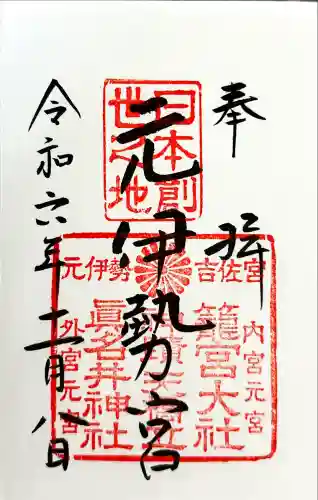 奉拝
日本創
世之地
元伊勢宮
吉佐宮
元伊勢
内宮元宮
籠宮大社
眞名井神社
外宮元宮
令和六年十二月八日